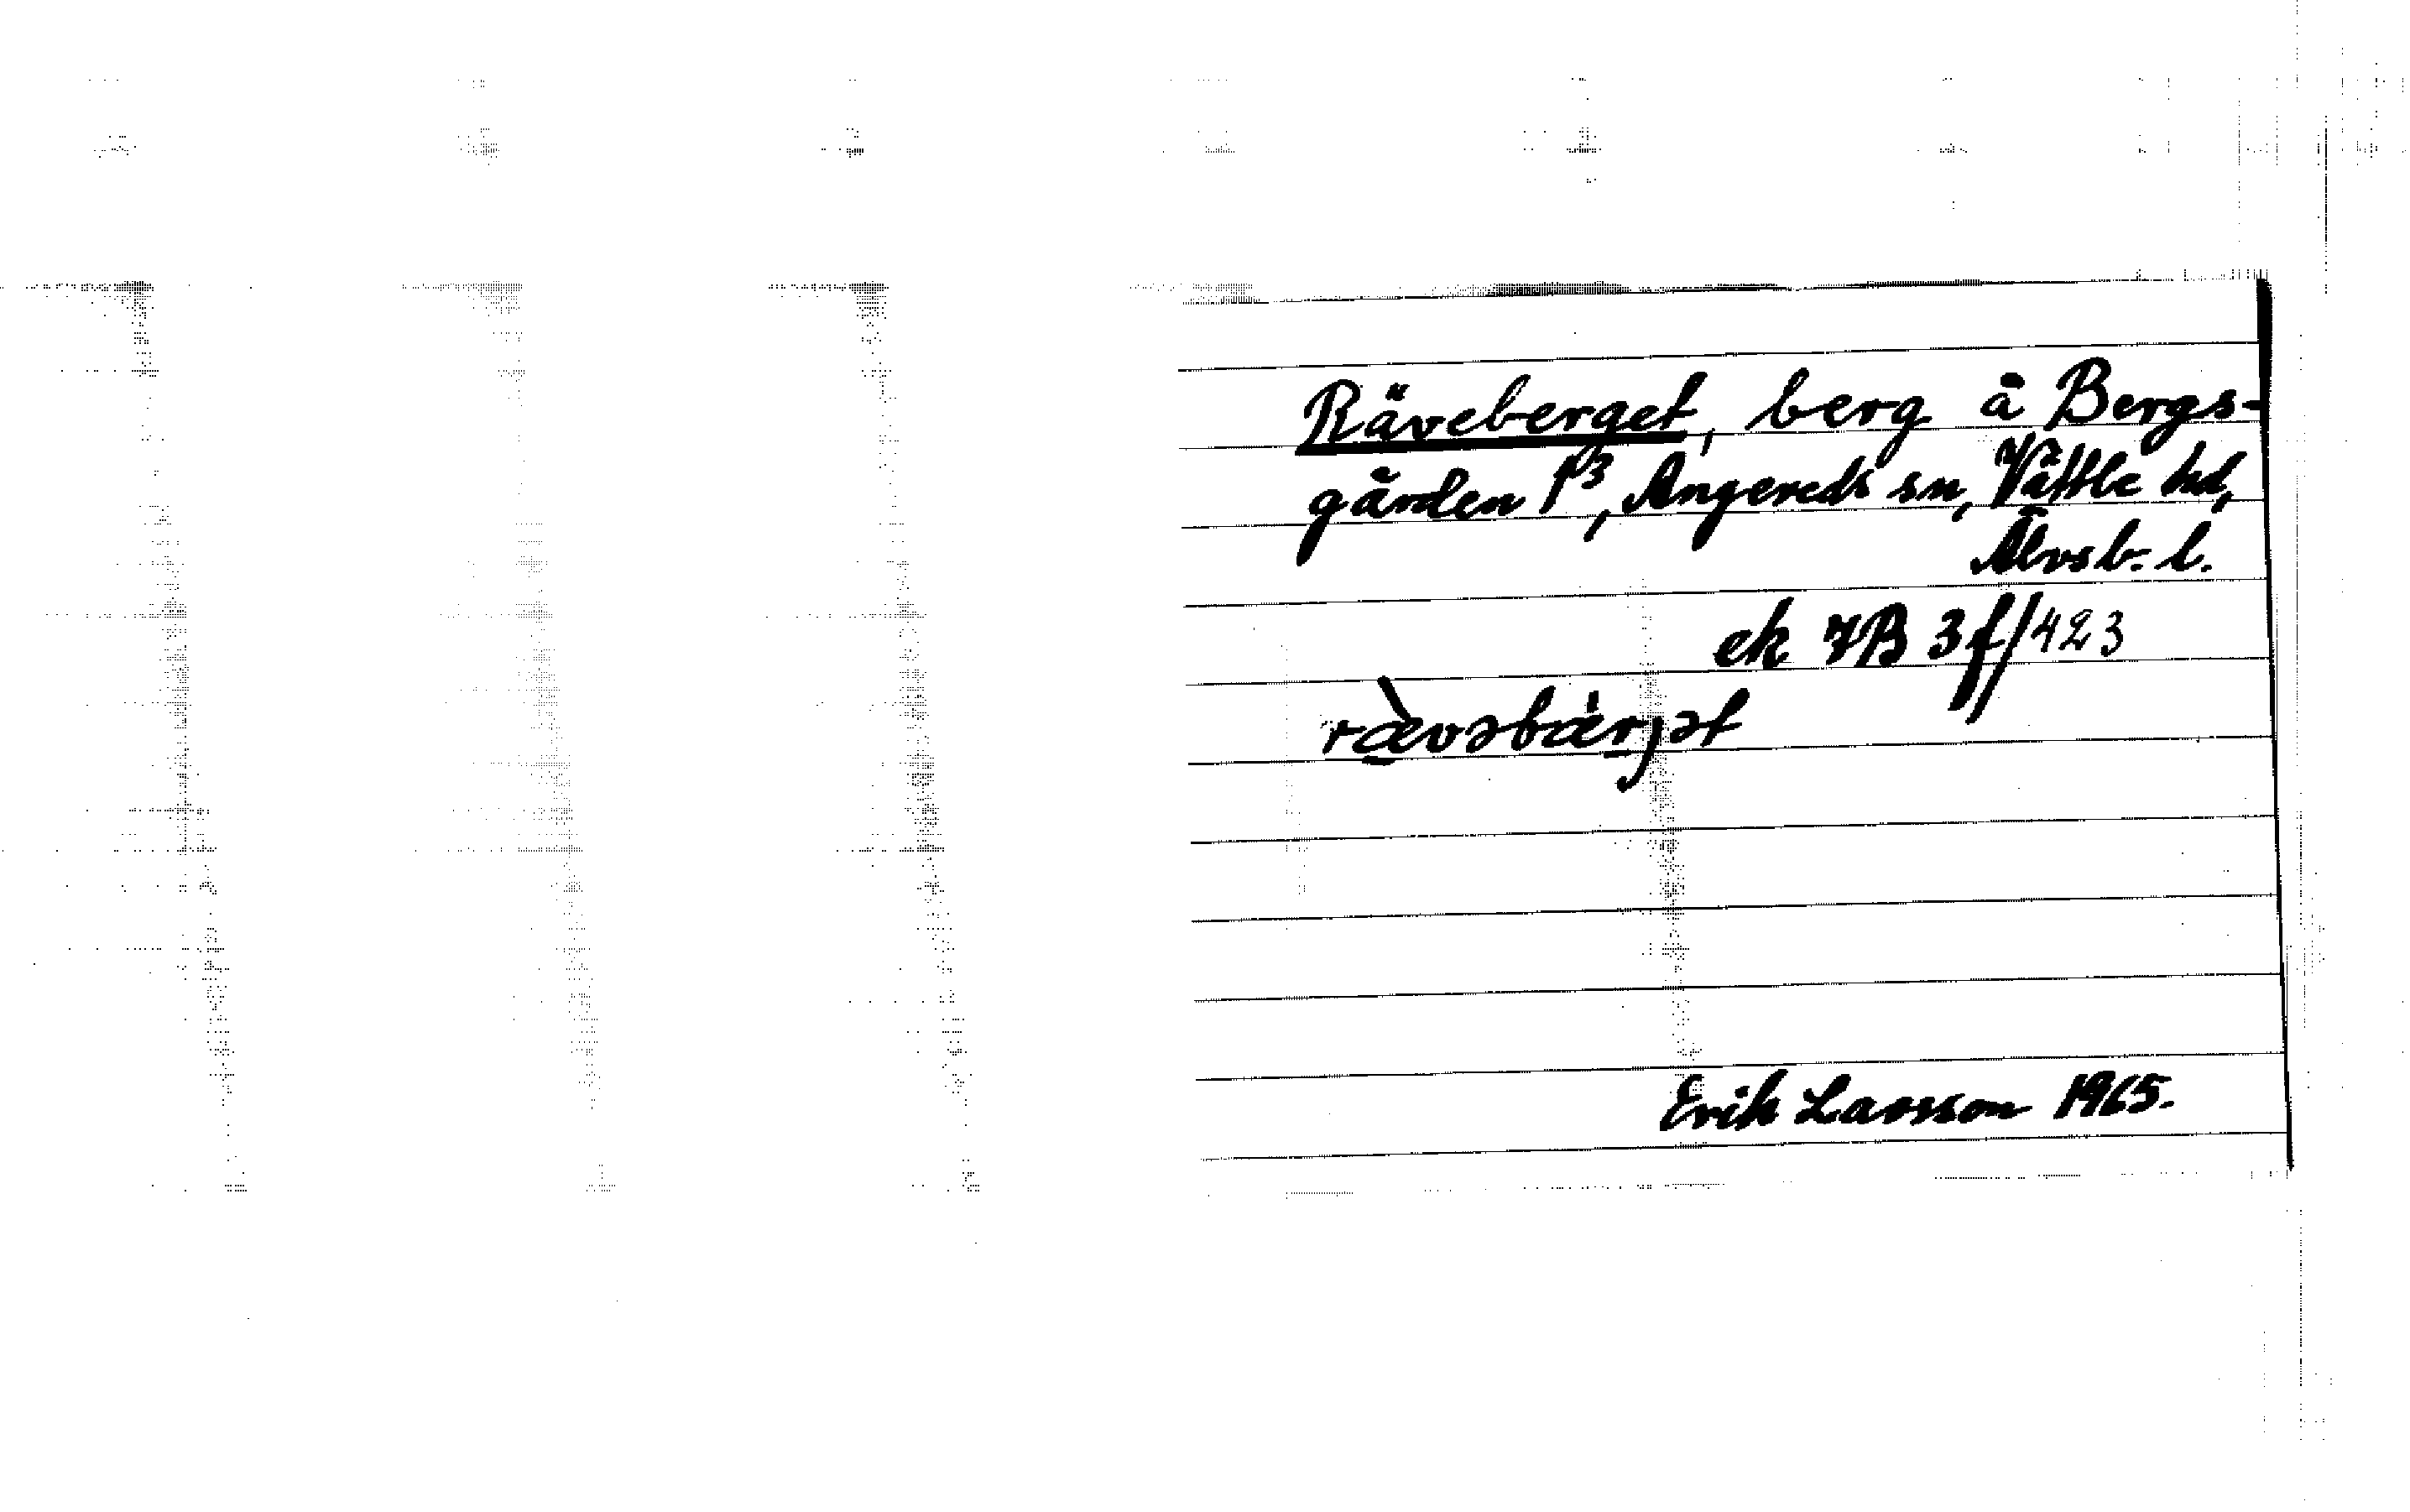 Räveberget, berg å Bergs-
gården 1³, Angereds sn, Vättle hd,
Älvsb. l.
ek 7B 3f/423
rævəbærjət
Erik Larsson 1965.